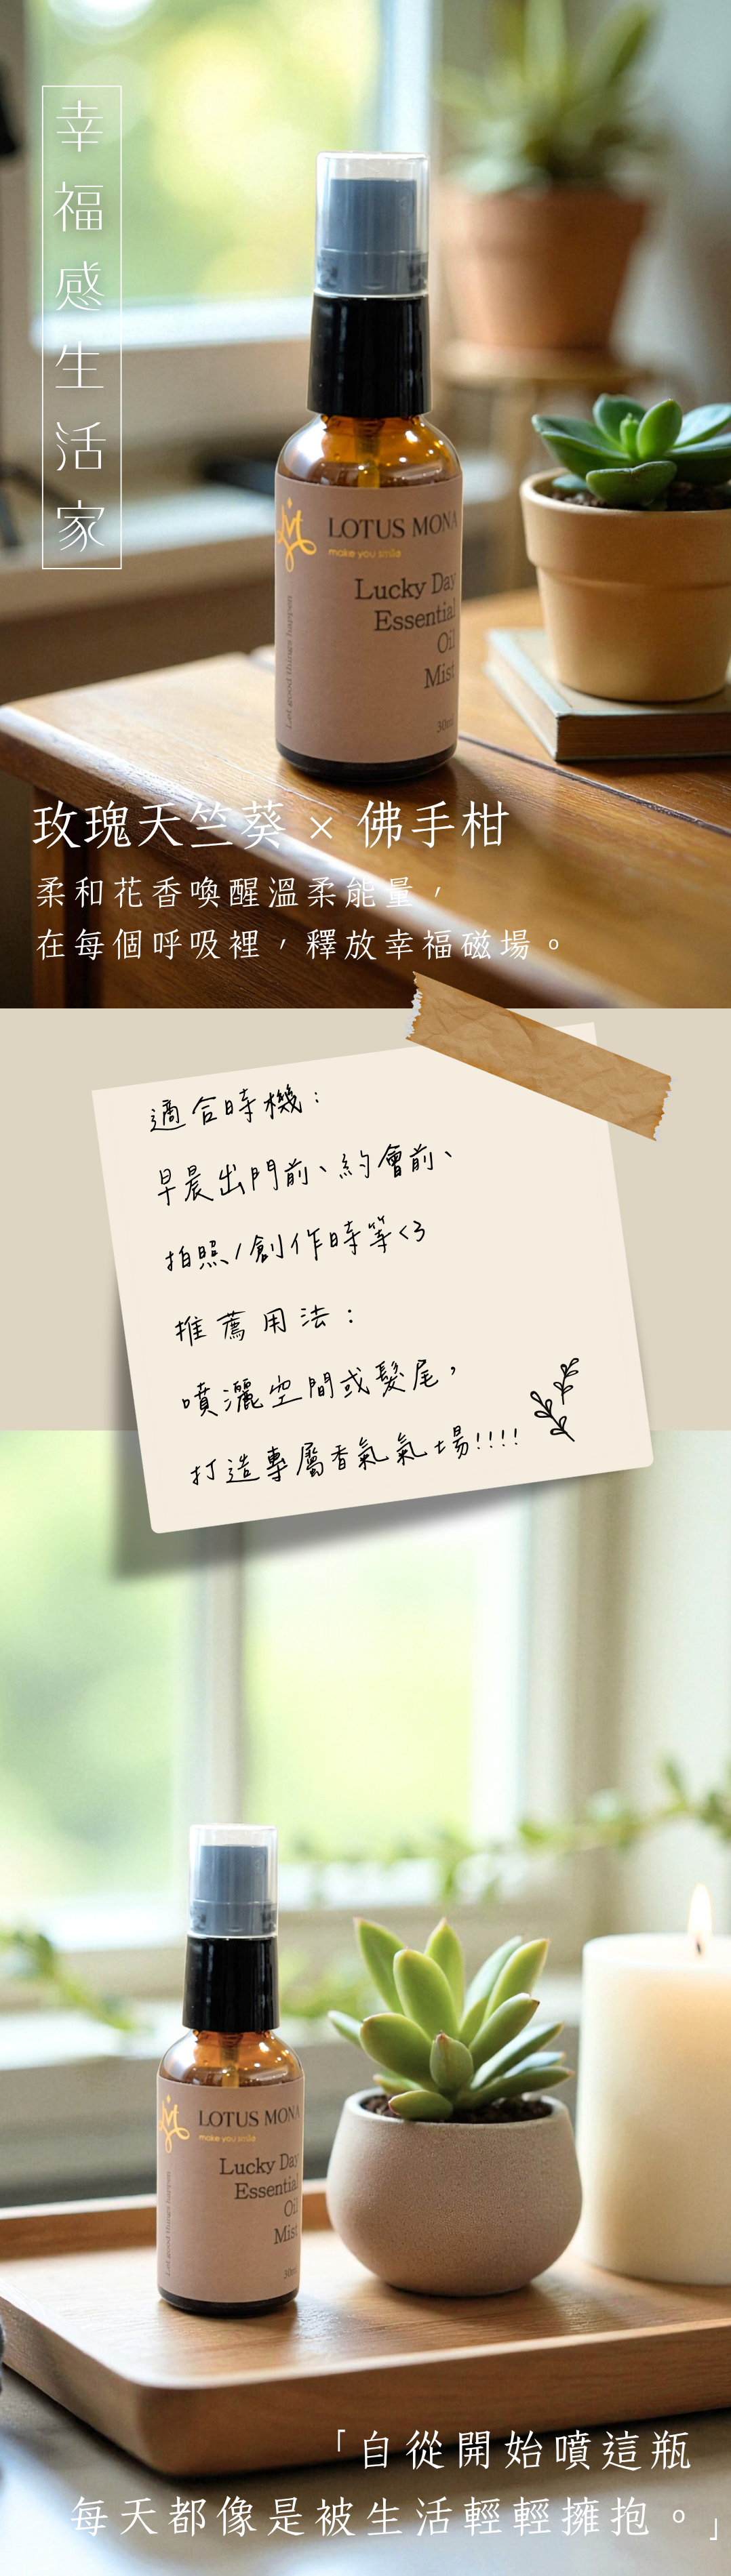 幸福感生活家
LOTUS MONA
make you smile
Lucky Day
Essential
Oil
Mist
Let good things happen
30ml
玫瑰天竺葵 × 佛手柑
柔和花香喚醒溫柔能量，
在每個呼吸裡，釋放幸福磁場。
適合時機：
早晨出門前、約會前、
拍照/創作時等<3
推薦用法：
噴灑空間或髮尾，
打造專屬香氣氣場!!!!
LOTUS MONA
make you smile
Lucky Day
Essential
Oil
Mist
Let good things happen
30ml
「自從開始噴這瓶
每天都像是被生活輕輕擁抱。」